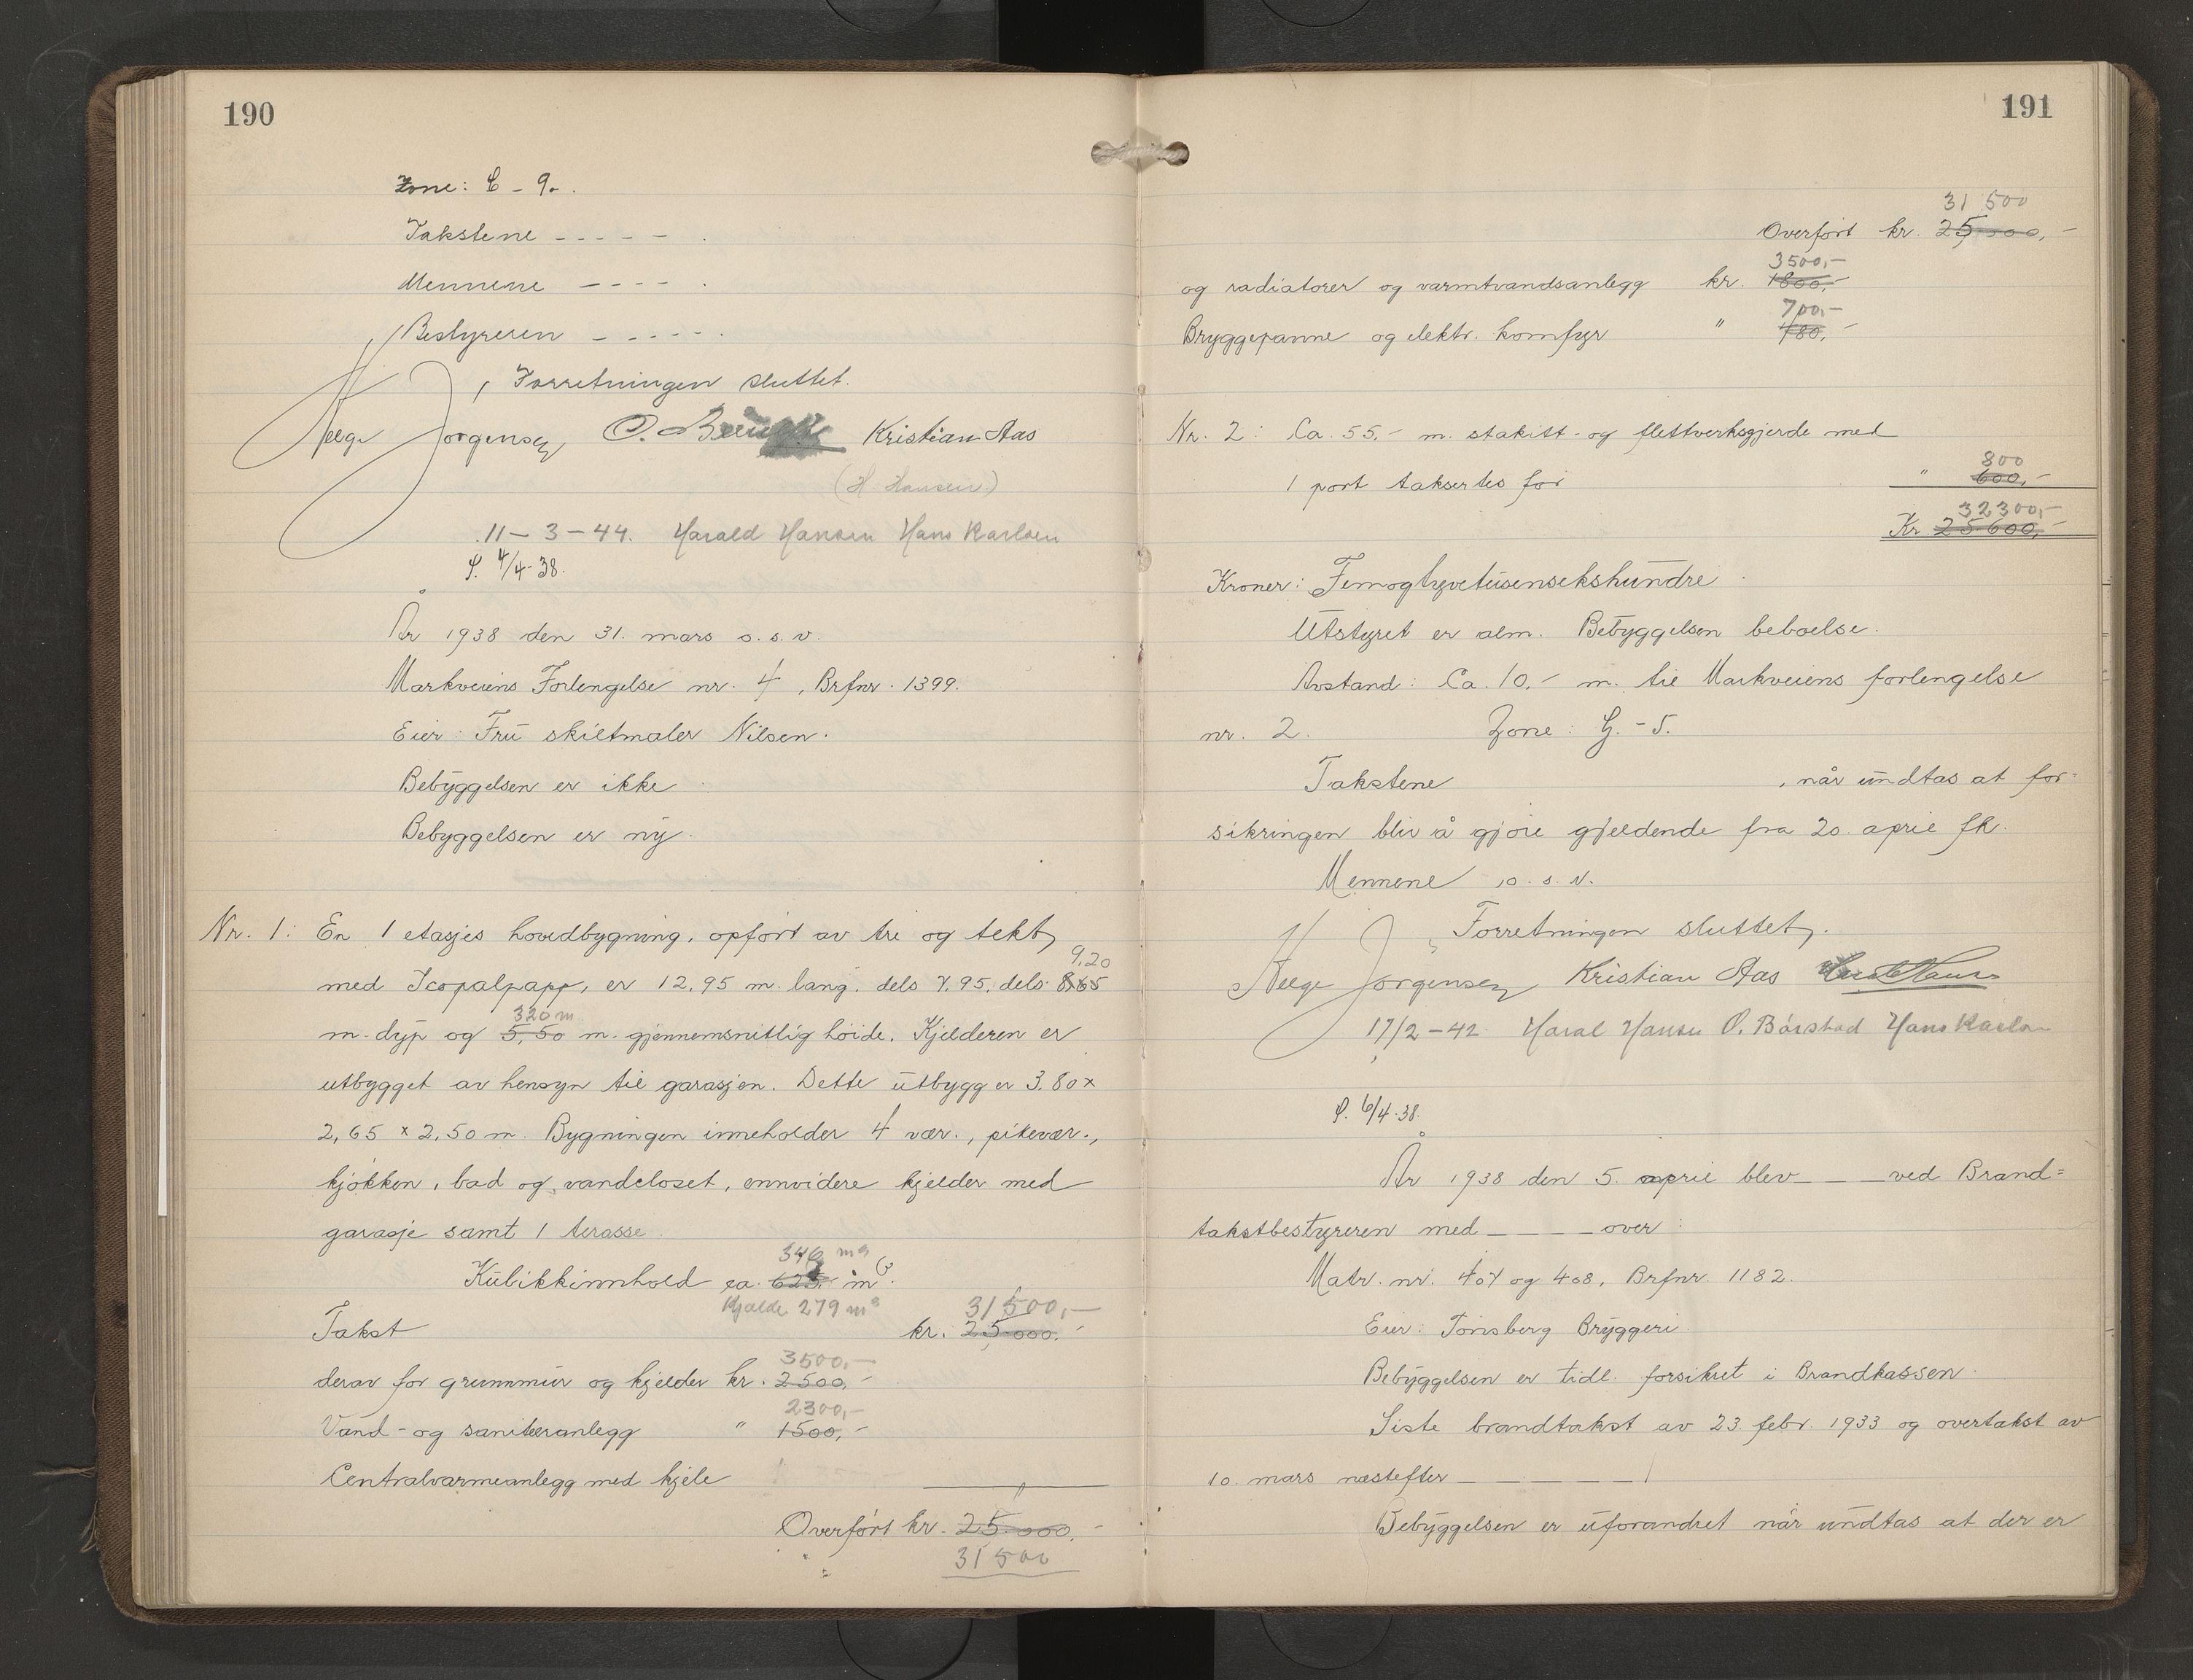 190
Zone: C - 9.
Takstene - - - - - .
Mennene - - - - .
Bestyreren - - - - - .
, Forretningen sluttet.
Helge Jørgensen, O. Kristian Aas
(H. Hansen)
11-3-44. Harald Hansen Hans Karlsen
S. 4/4-38.
År 1938 den 31. mars o.s.v.
Markveiens Forlengelse nr. 4, Brfnr. 1399.
Eier: Fru skiltmaler Nilsen.
Bebyggelsen er ikke
Bebyggelsen er ny.
Nr. 1: En 1 etasjes hovedbygning, opført av tre og tekt,
9,20
med Icopalpapp, er 12,95 m. lang. dels 7.95, dels 8,65
320 m
m. dyp og 5,50 m. gjennemsnitlig høide. Kjelderen er
utbygget av hensyn til garasjen. Dette utbygg er 3.80 x
2,65 x 2,50 m. Bygningen inneholder 4 vær., pikevær.,
kjøkken, bad og vandcloset, ennvidere kjelder med
garasje samt 1 terasse.
346 m³
Kubikkinnhold ca. 625 m³.
Kjælde 279 m³ 31500,-
Takst kr. 25.000.-
3500,-
derav for grunnmur og kjelder kr. 2500,-
2300,-
Vand- og sanitæranlegg " 1500,-
Centralvarmeanlegg med kjele
Overført kr. 25.000,-
31500
191
31 500
Overført kr. 25.000,-
3500,-
og radiatorer og varmtvandsanlegg kr. 1800,-
700,-
Bryggepanne og elektr. komfyr " 480,-
Nr. 2: Ca. 55,- m. stakitt- og flettverksgjerde med
800
1 port taksertes for " 600,-
32300,-
Kr. 25.600,-
Kroner: Femogtyvetusensekshundre
Utstyret er alm. Bebyggelsen beboelse.
Avstand: Ca. 10,- m. til Markveiens forlengelse
nr. 2. Zone: G. - 5.
Takstene , når undtas at for-
sikringen bliv å gjøre gjeldende fra 20. april fk.
Mennene o.s.v.
, Forretningen sluttet,.
Helge Jørgensen, Kristian Aas
17/2-42 Haral Hansen O. Bårstad Hans Karlsen
S. 6/4-38.
År 1938 den 5. april blev - - - ved Brand-
takstbestyreren med - - - - over:
Matr. nr. 407 og 408, Brfnr. 1182.
Eier: Tønsberg Bryggeri
Bebyggelsen er tidl. forsikret i Brandkassen.
Siste brandtakst av 23. febr. 1933 og overtakst av
10. mars næstefter - - - - - -
Bebyggelsen er uforandret når undtas at der er